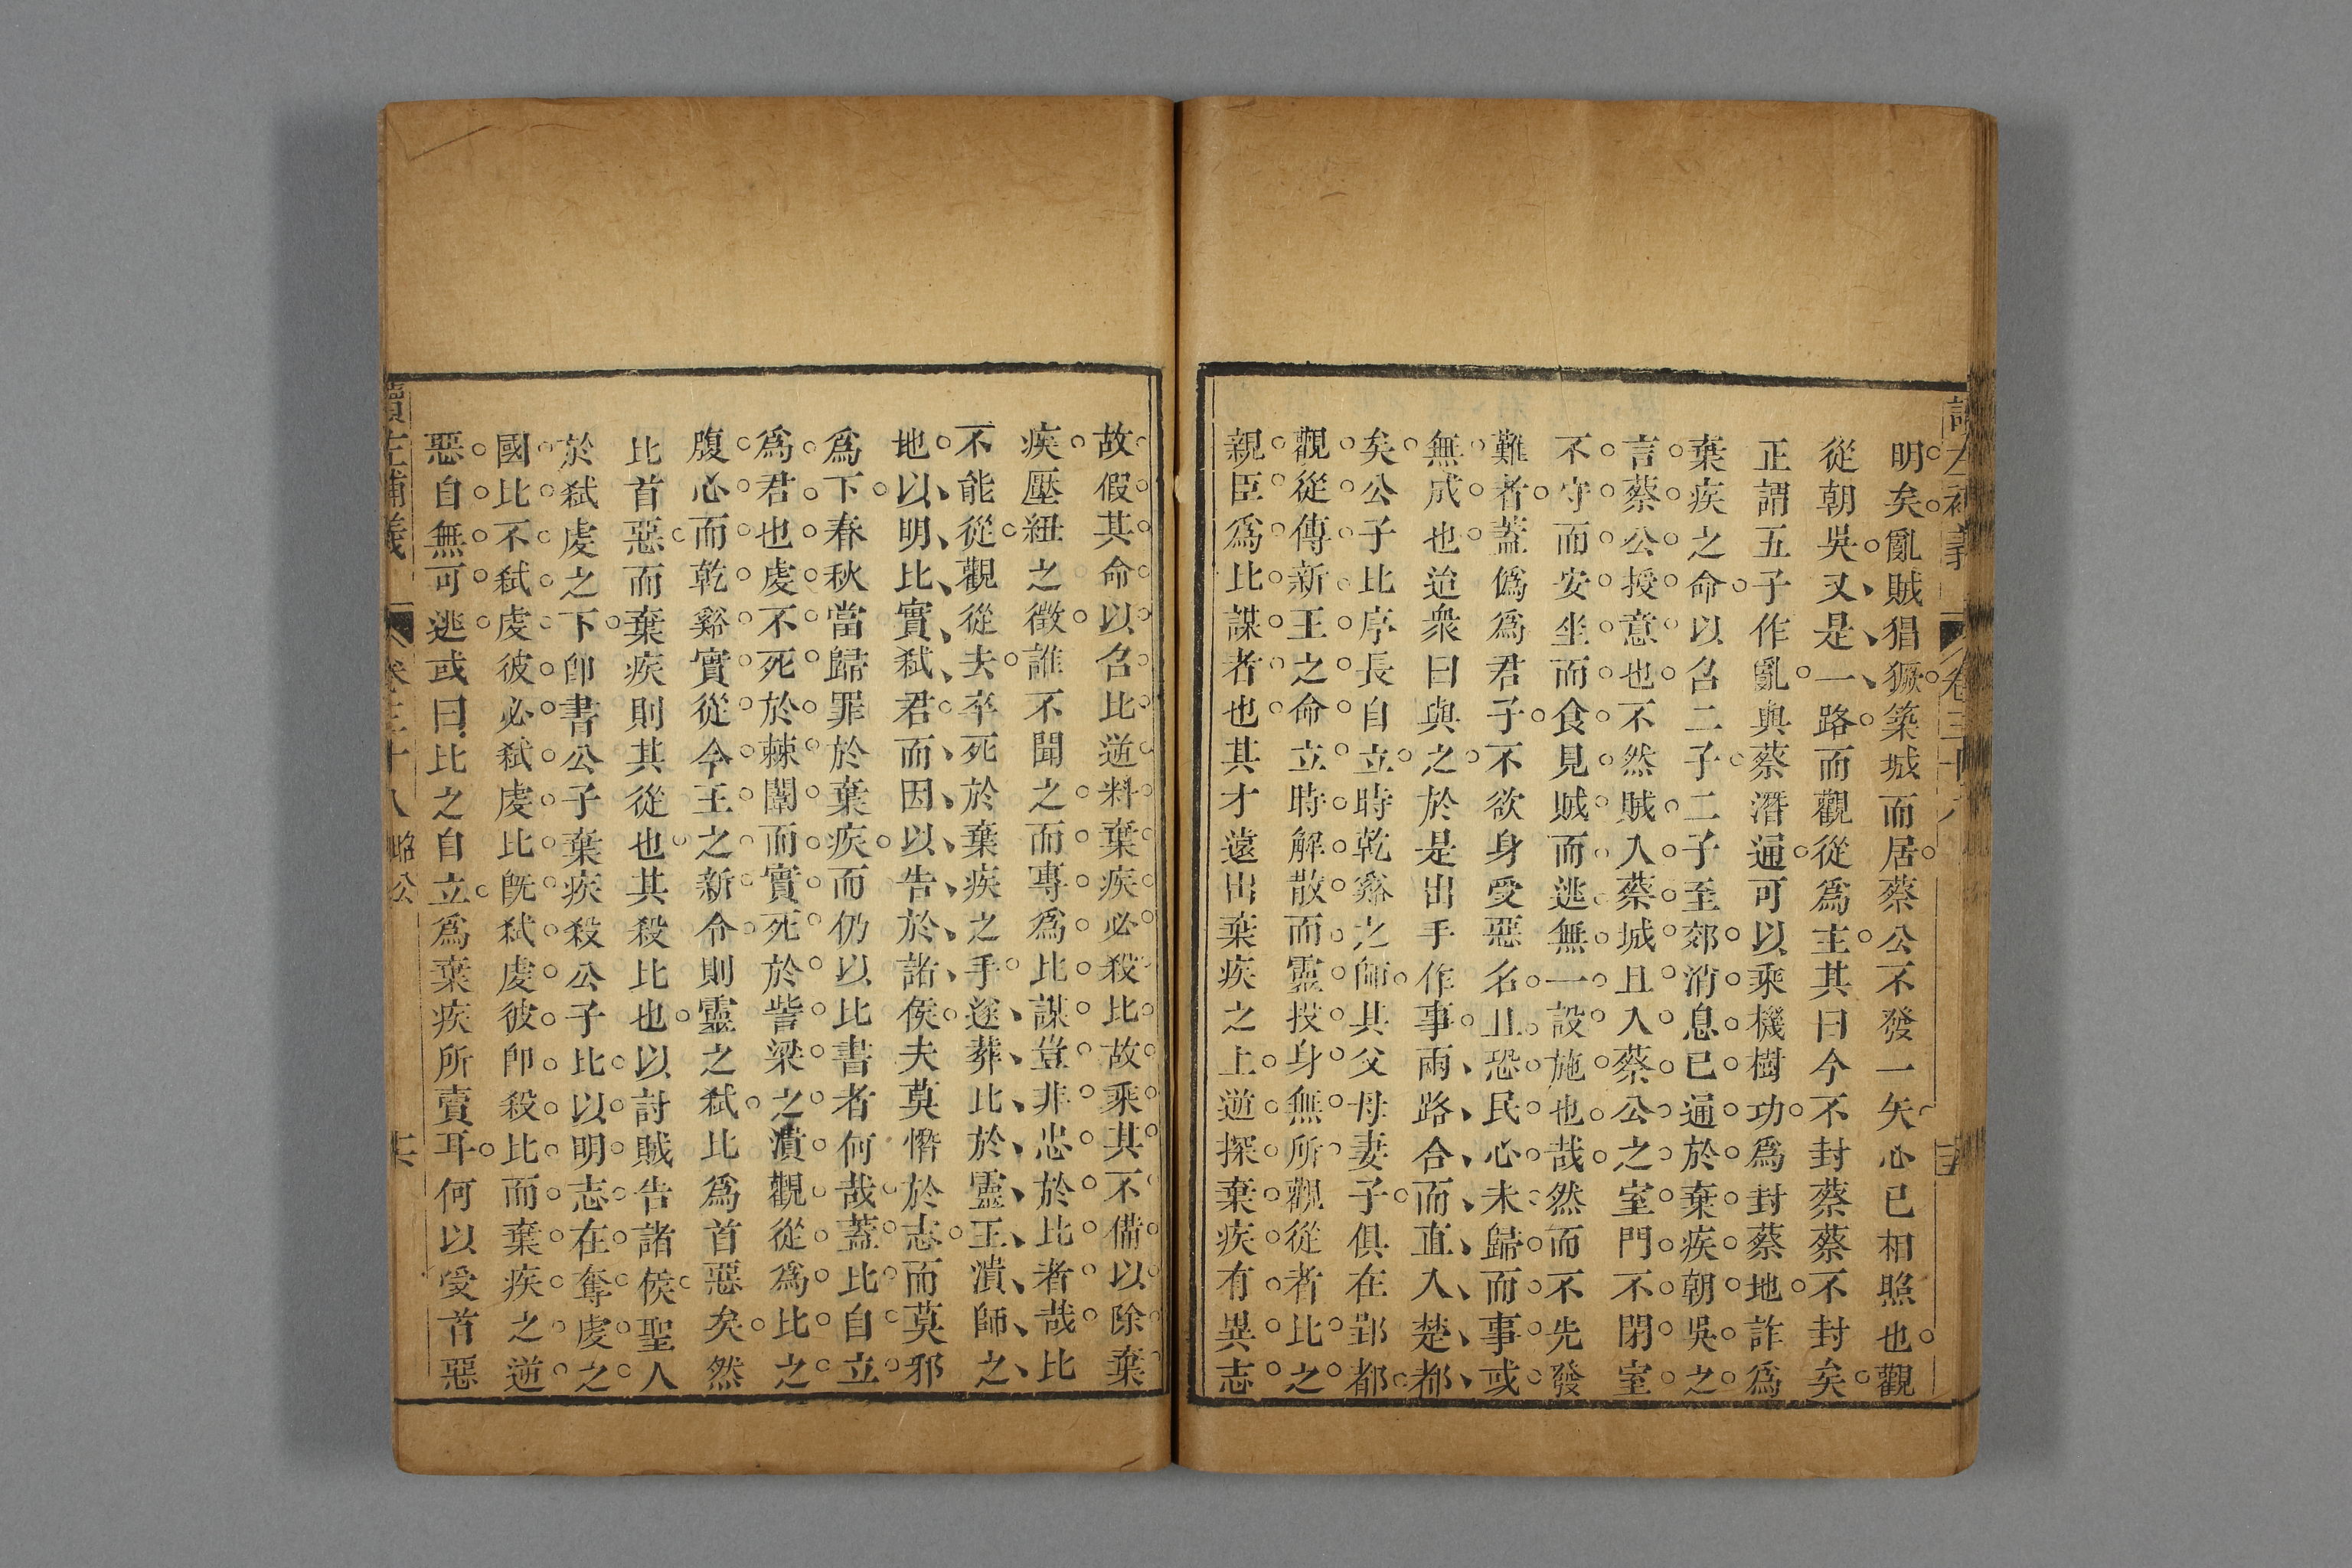 明矣亂賊猖獗築城而居蔡公不發一矢心已相照也觀
從朝吳又是一路而觀從爲主其曰今不封蔡蔡不封矣
正謂五子作亂與蔡潛通可以乘機樹功爲封蔡地詐爲
棄疾之命以召二子二子至郊消息已通於棄疾朝吳之
言蔡公授意也不然賊入蔡城且入蔡公之室門不閉室
不守而安坐而食見賊而逃無一設施也哉然而不先發
難者蓋僞爲君子不欲身受惡名且恐民心未歸而事或
無成也迨衆曰與之於是出手作事兩路合而直入楚都
矣公子比序長自立時乾谿之師其父母妻子俱在郢都
觀從傳新王之命立時解散而靈投身無所觀從者比之
親臣爲比謀者也其才遠出棄疾之上逆探棄疾有異志
故假其命以召比逆料棄疾必殺比故乘其不備以除棄
疾壓紐之徵誰不聞之而專爲比謀豈非忠於比者哉比
不能從觀從去卒死於棄疾之手遂葬比於靈王潰師之
地以明比實弒君而因以告於諸侯夫莫憯於志而莫邪
爲下春秋當歸罪於棄疾而仍以比書者何哉蓋比自立
爲君也虔不死於棘闈而實死於訾梁之潰觀從爲比之
腹心而乾谿實從今王之新令則靈之弒比爲首惡矣然
比首惡而棄疾則其從也其殺比也以討賊告諸侯聖人
於弒虔之下卽書公子棄疾殺公子比以明志在奪虔之
國比不弒虔彼必弒虔比旣弒虔彼卽殺比而棄疾之逆
惡自無可逃或曰比之自立爲棄疾所賣耳何以受首惡
讀左補義 卷三十八 昭公